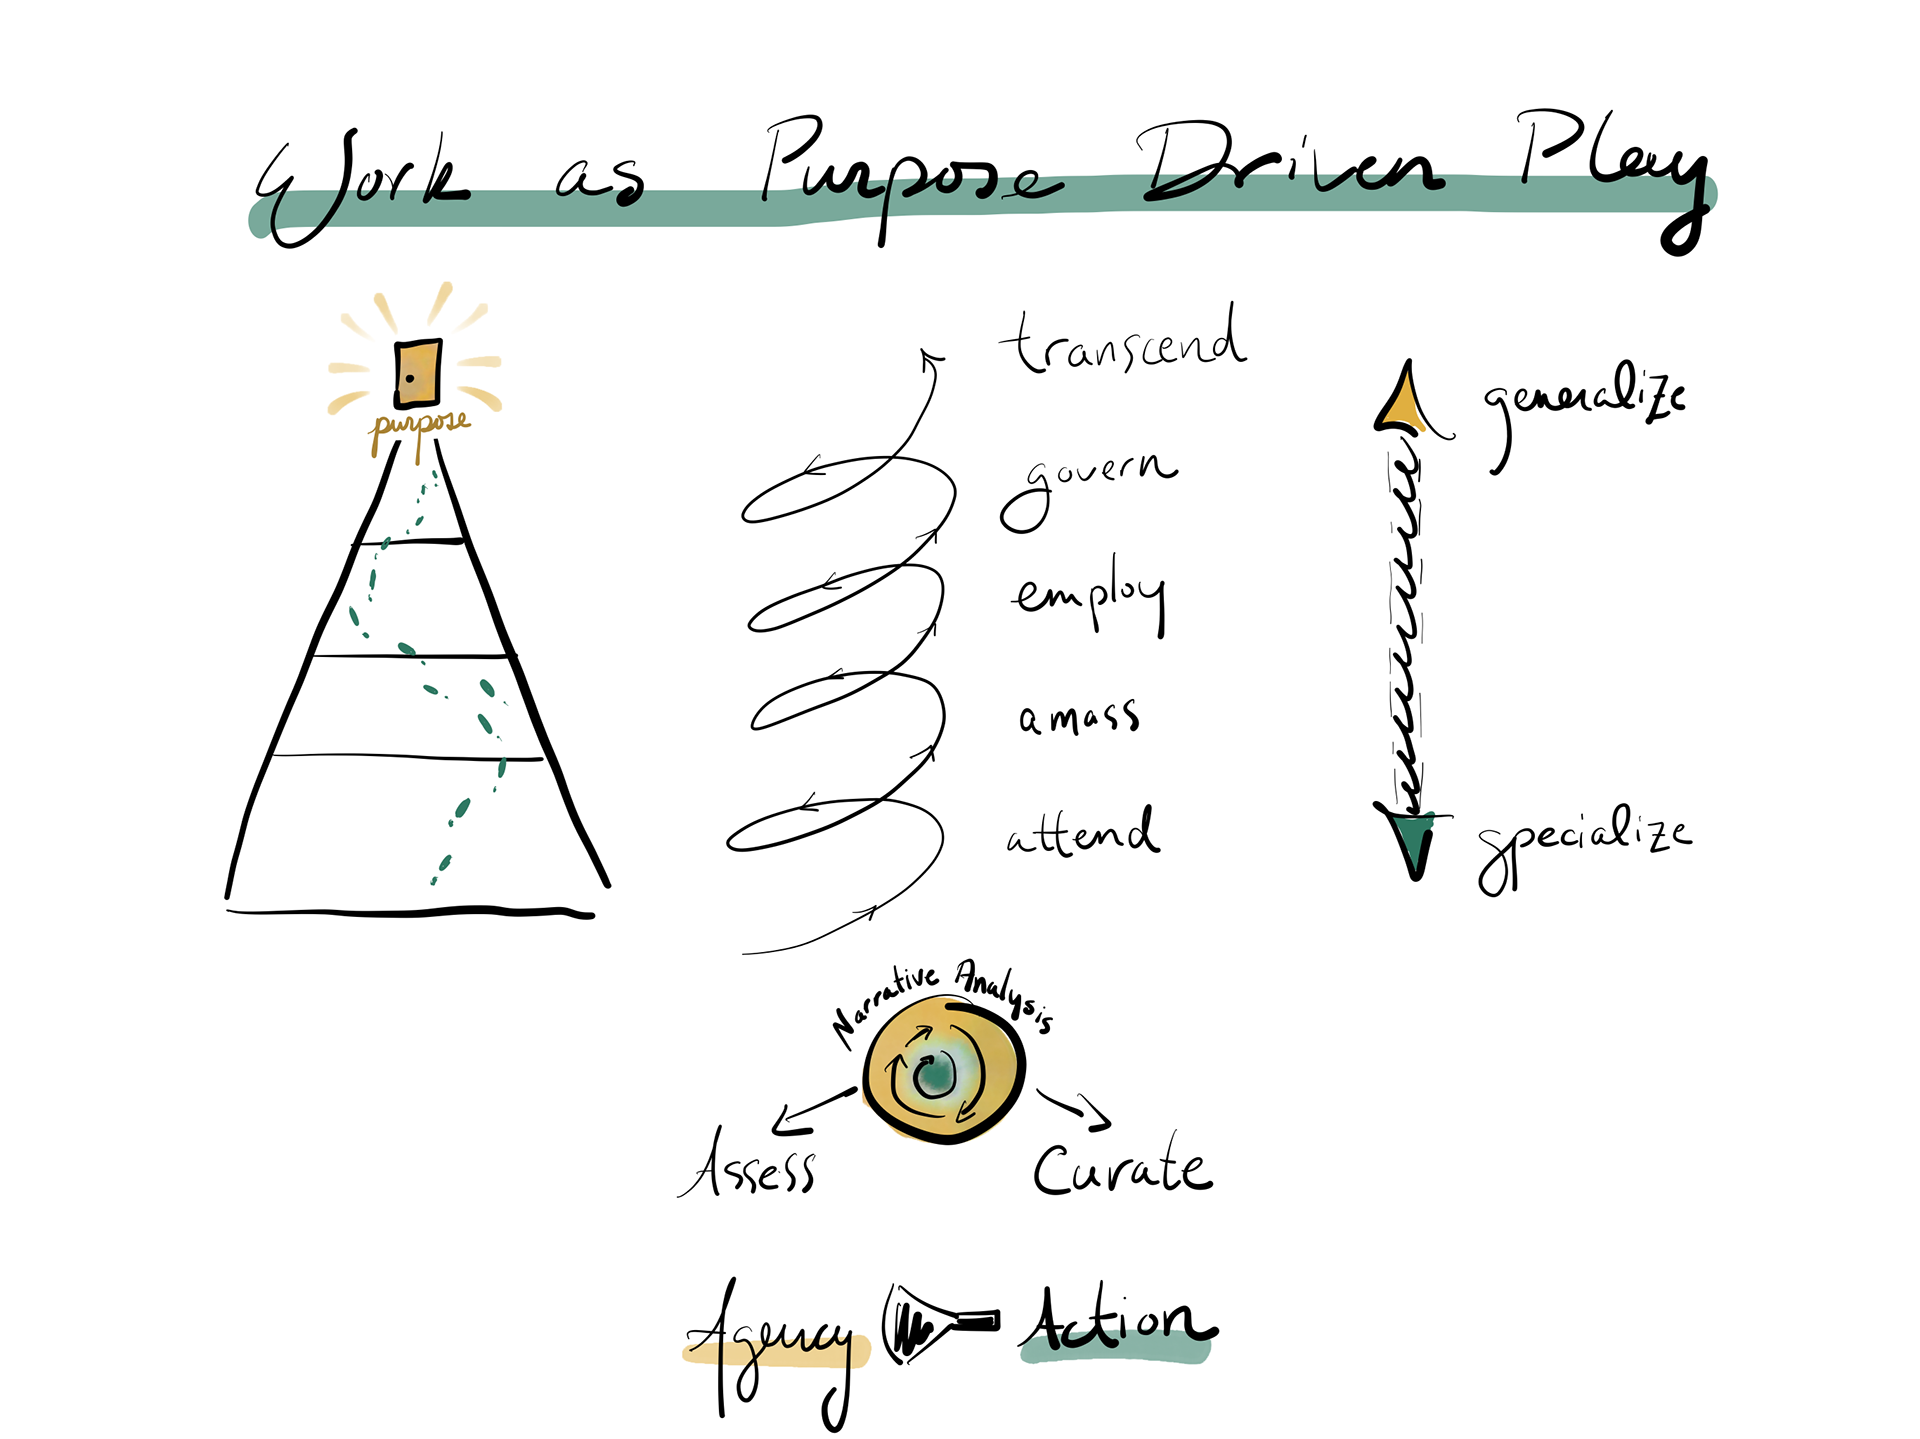 Work as Purpose Driven Play
purpose
transcend
govern
employ
amass
attend
generalize
specialize
Narrative Analysis
Assess
Curate
Agency
Action